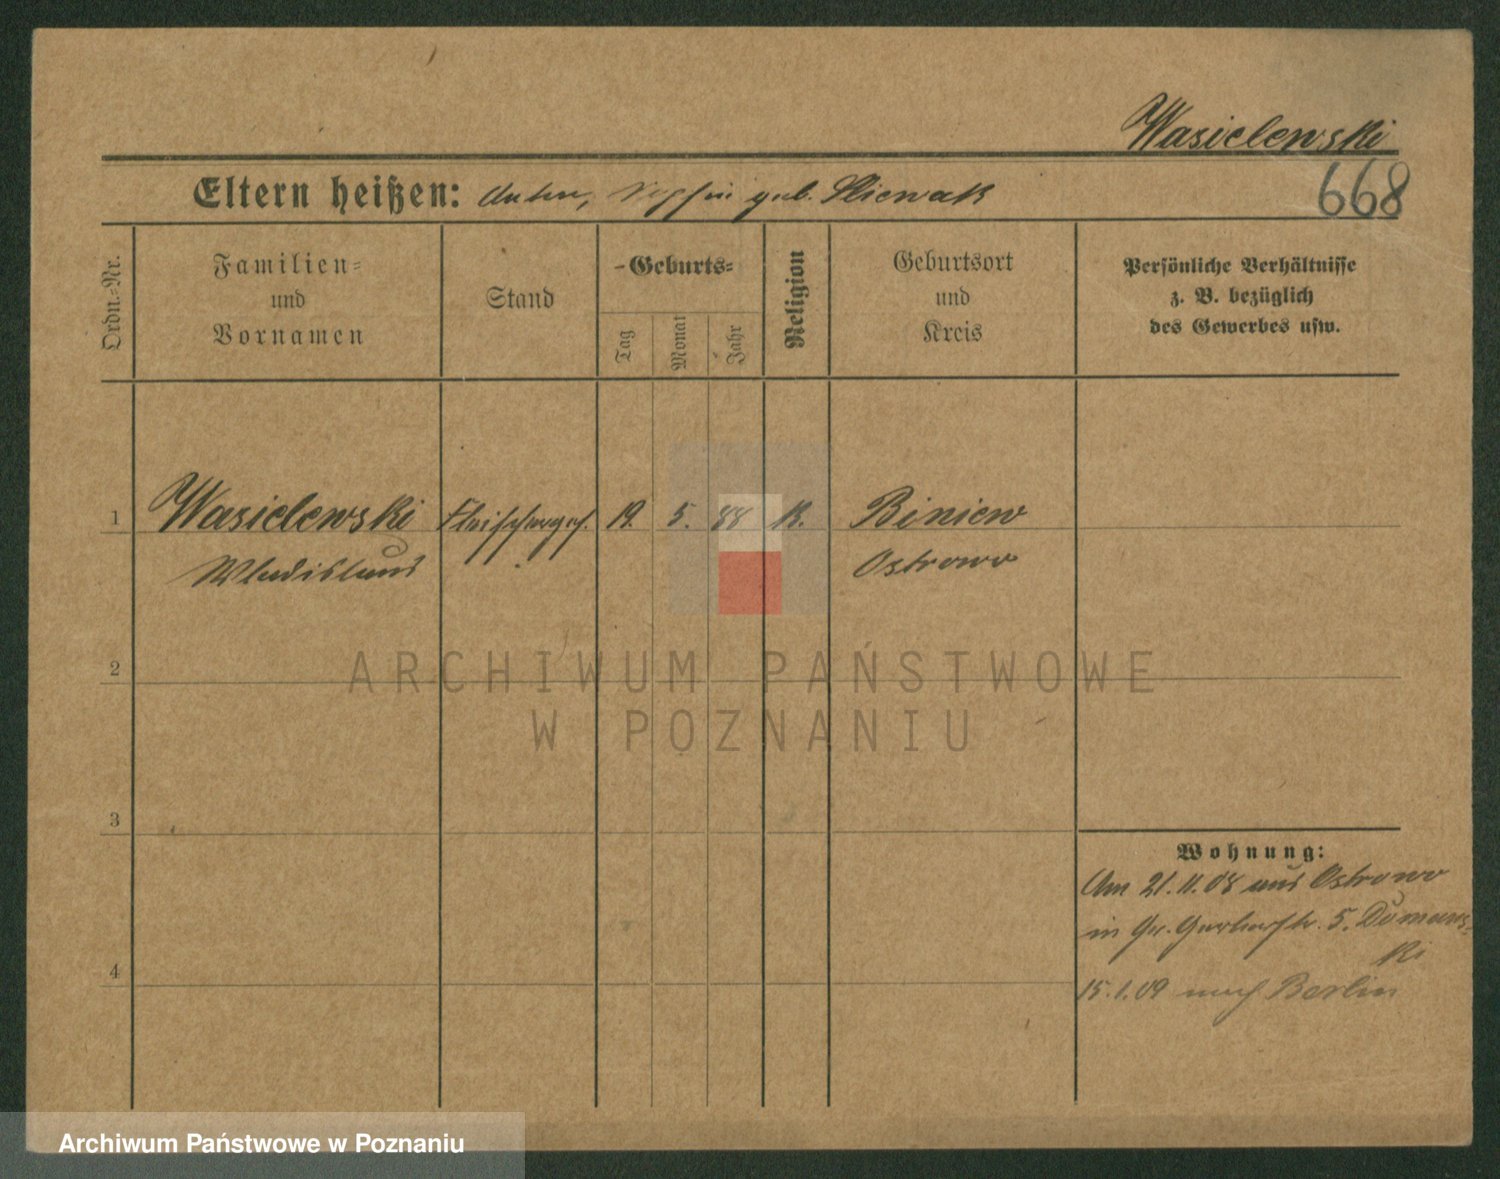 Wasielewski
668
Eltern heißen: Anton, geb. Sliewak
Ordn.-Nr.
Familien-
und
Vornamen
Stand
-Geburts-
Tag
Monat
Jahr
Religion
Geburtsort
und
Kreis
Persönliche Verhältnisse
z. B. bezüglich
des Gewerbes usw.
1 Wasielewski Fleischerges. 19. 5. 88 K. Biniew
Wladislaus Ostrowo
ARCHIWUM PAŃSTWOWE
W POZNANIU
2
3
Wohnung:
Am 21.11.08 aus Ostrowo
in Gr. Gerberstr. 5. Domans-
ki
4
15.1.09 nach Berlin
Archiwum Państwowe w Poznaniu